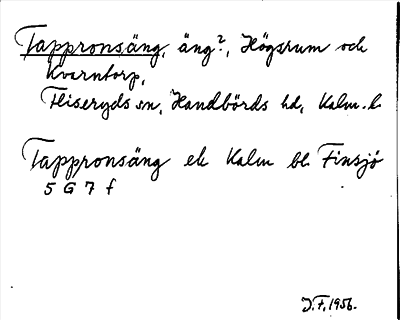 Tappronsäng, äng?, Högsrum och
Kvarntorp,
Fliseryds sn, Handbörds hd, Kalm. l.
Tappronsäng ek Kalm bl Finsjö
5 G 7 f
J.F, 1956.